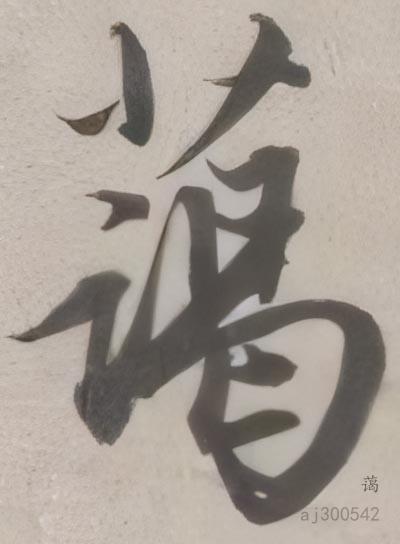 蔼
蔼
aj300542